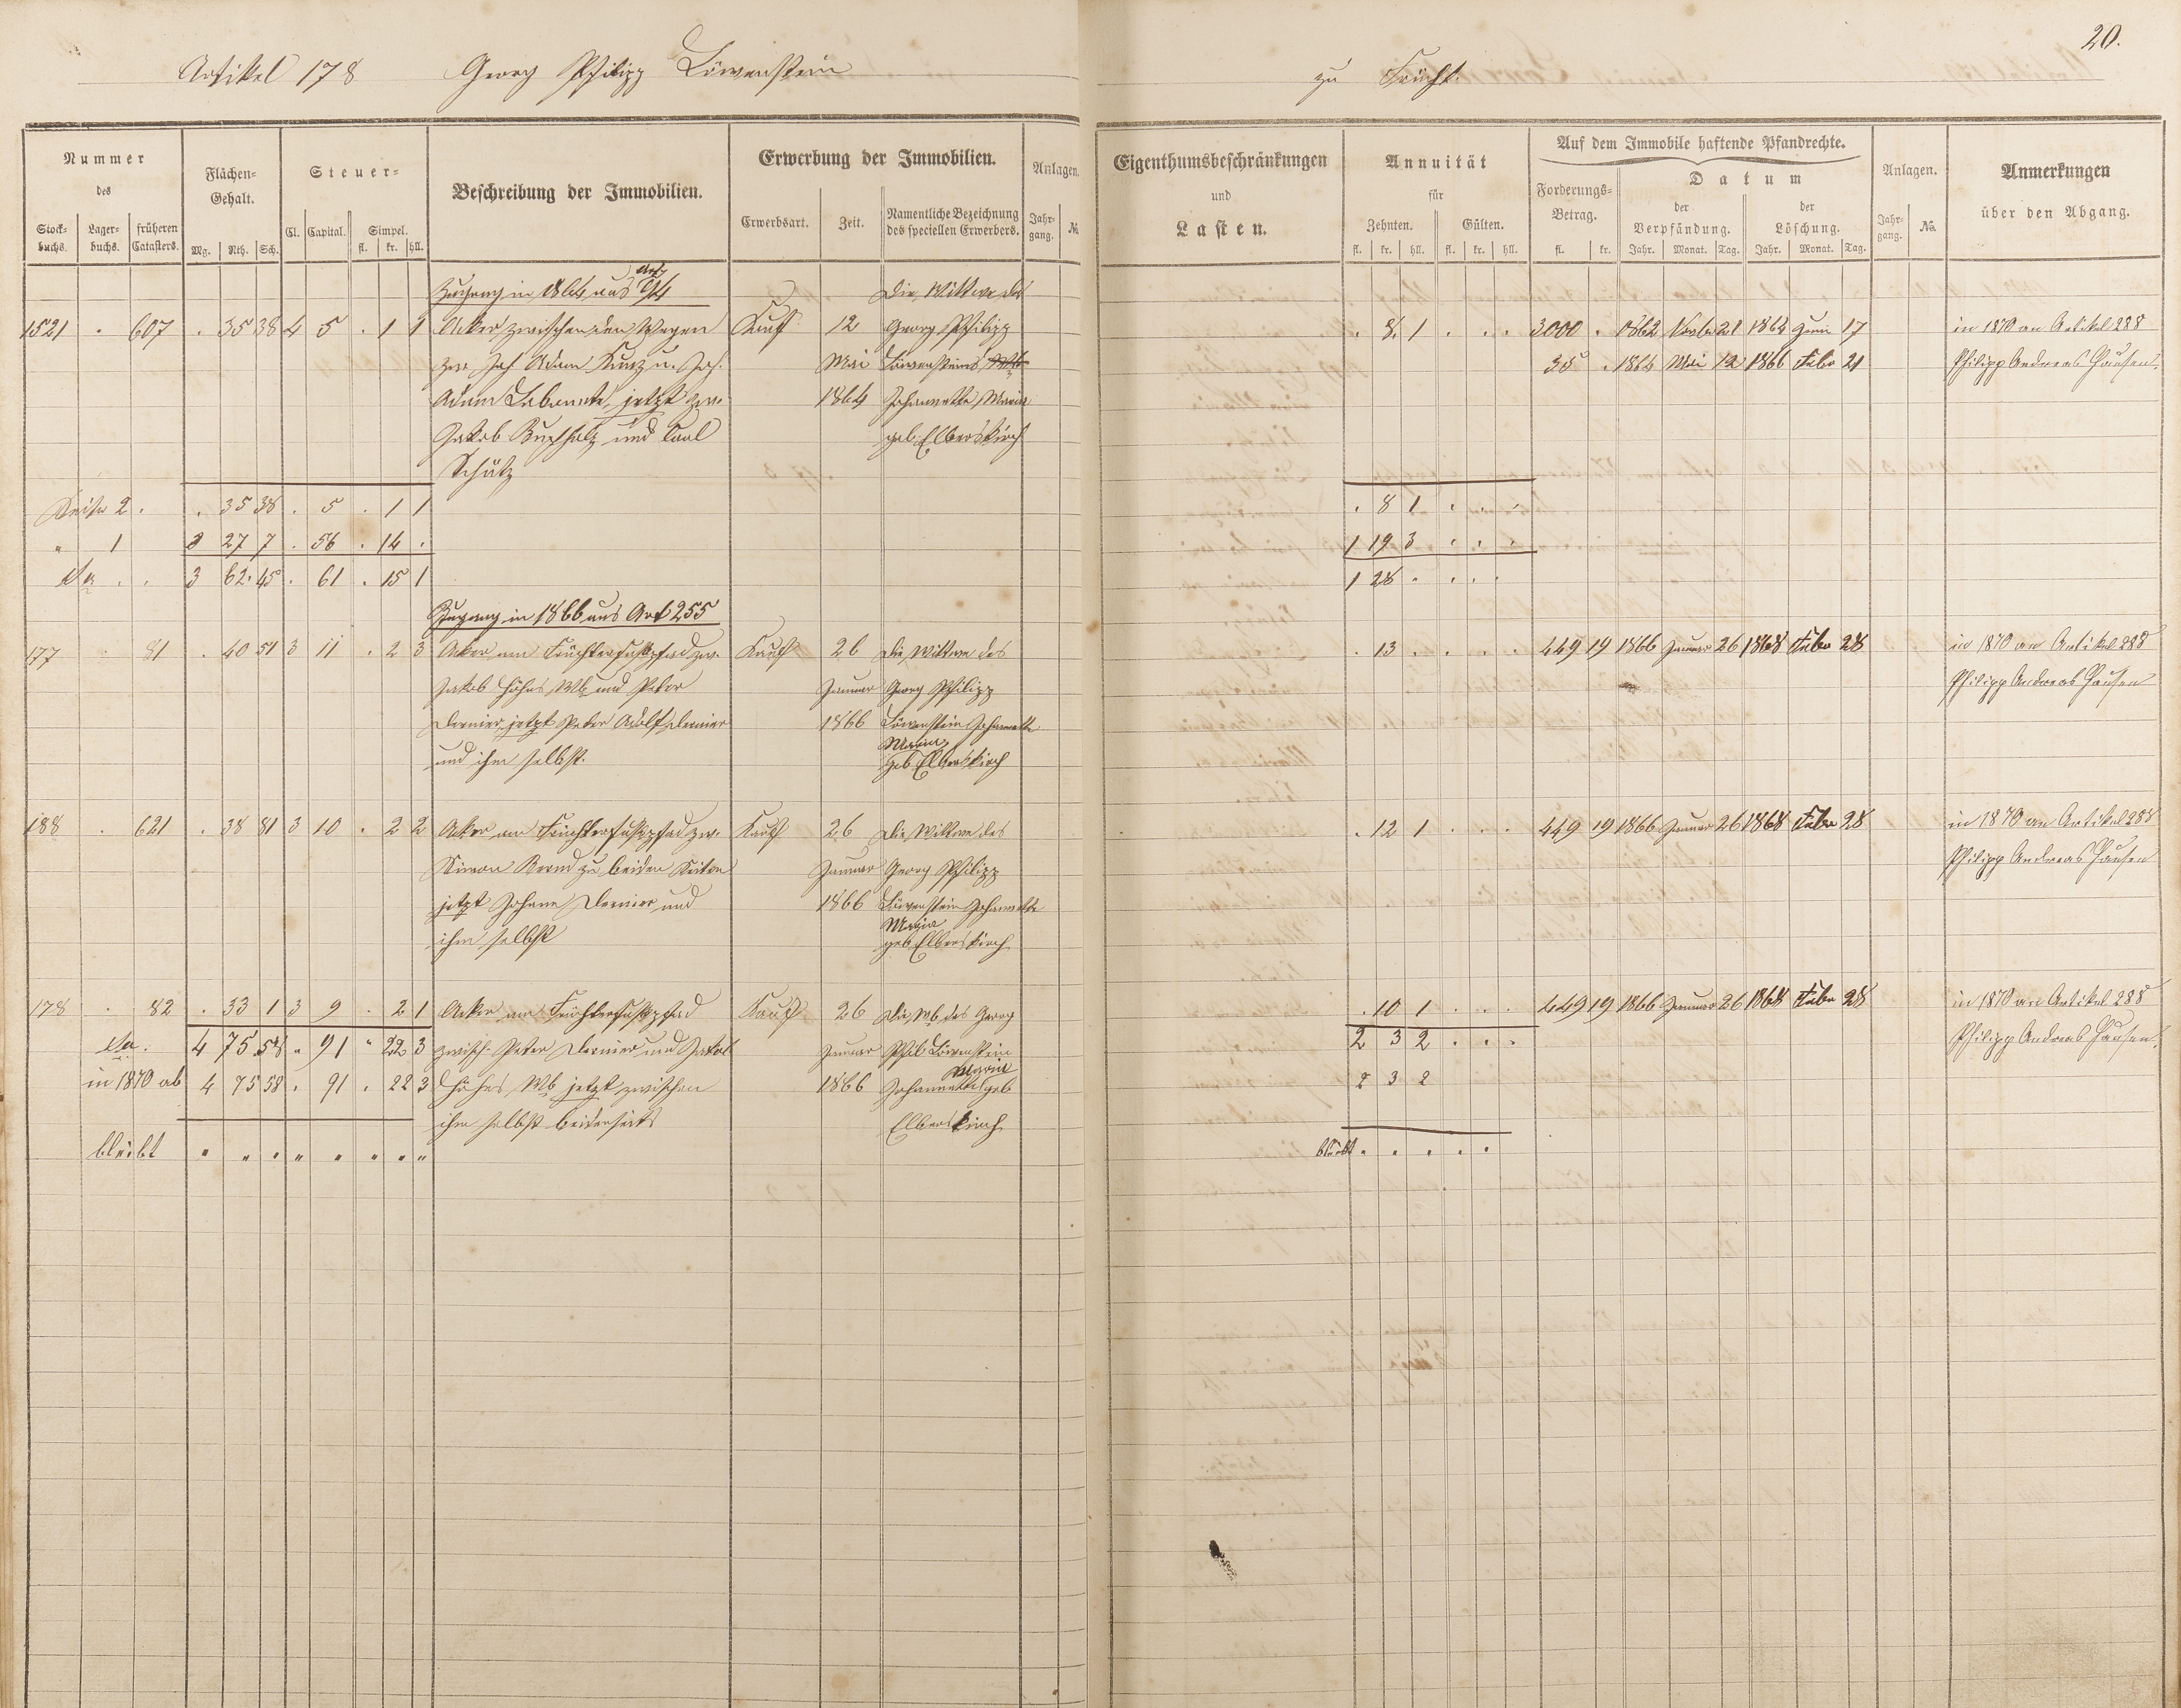 20.
Artikel 178 Georg Philipp Löwenstein zu Frücht.
Nummer des
Stock- buchs. Lager- buchs. früheren Catasters.
Flächen- Gehalt.
Mg. Rth. Sch.
Steuer-
Cl. Capital. Simpel.
fl. kr. hll.
Beschreibung der Immobilien.
Erwerbung der Immobilien.
Erwerbsart. Zeit. Namentliche Bezeichnung des speciellen Erwerbers.
Anlagen.
Jahr- gang. No.
Eigenthumsbeschränkungen
und
Lasten.
Annuität
für
Zehnten. Gülten.
fl. kr. hll. fl. kr. hll.
Auf dem Immobile haftende Pfandrechte.
Forderungs- Betrag.
fl. kr.
Datum
der Verpfändung. der Löschung.
Jahr. Monat. Tag. Jahr. Monat. Tag.
Anlagen.
Jahr- gang. No.
Anmerkungen
über den Abgang.
Zugang in 1864 aus Art Die Wittwe des
1521 . 607 . 35 38 4 5 . 1 1 Acker zwischen den Wegen Kauf 12 Georg Philipp . 8 1 . . . 3000 . 1862 21 1864 Juni 17 in 1870 an Artikel 288
zw. Joh Adam Kurz u. Joh. Mai Löwensteins 35 . 1864 Mai 12 1866 Febr 21 Philipp Andreas Hausen
Adam jetzt zw. 1864 Johannette Maria
Jakob Buchholz und Carl geb. Elberskirch
Schütz
Seite 2 . . 35 38 . 5 . 1 1 . 8 1 . . .
" 1 3 27 7 . 56 . 14 . 1 19 3 . . .
Sa . . 3 62 45 . 61 . 15 1 1 28 . . . .
Zugang in 1866 aus Art 255
177 . 81 . 40 51 3 11 . 2 3 Acker am Früchterfußpfad zw. Kauf 26 Die Wittwe des . 13 . . . . 449 19 1866 Januar 26 1868 Febr 28 in 1870 an Artikel 288
Jakob Höhns Wb und Peter Januar Georg Philipp Philipp Andreas Hausen
Dernier, jetzt Peter Adolf Dernier 1866 Löwenstein Johannette
Maria
und ihm selbst. geb Elberskirch
188 . 621 . 38 81 3 10 . 2 2 Acker am Früchterfußpfad zw. Kauf 26 Die Wittwe des . 12 1 . . . 449 19 1866 Januar 26 1868 Febr 28 in 1870 an Artikel 288
Simon zu beiden Seiten Januar Georg Philipp Philipp Andreas Hausen
jetzt Johann Dernier und 1866 Löwenstein Johannette
Maria
ihm selbst geb Elberskirch
178 . 82 . 33 1 3 9 . 2 1 Acker am Früchterfußpfad Kauf 26 Die Wb. des Georg . 10 1 . . . 449 19 1866 Januar 26 1868 Febr 28 in 1870 an Artikel 288
Sa. 4 75 58 " 91 " 22 3 zwisch. Peter Dernier und Jakob Januar Phil Löwenstein 2 3 2 . . . Philipp Andreas Hausen
Maria
in 1870 ab 4 75 58 . 91 . 22 3 Höhns Wb jetzt zwischen 1866 Johannette geb 2 3 2
ihm selbst beiderseits Elberskirch
bleibt " " " " " " " " bleibt . . . . .